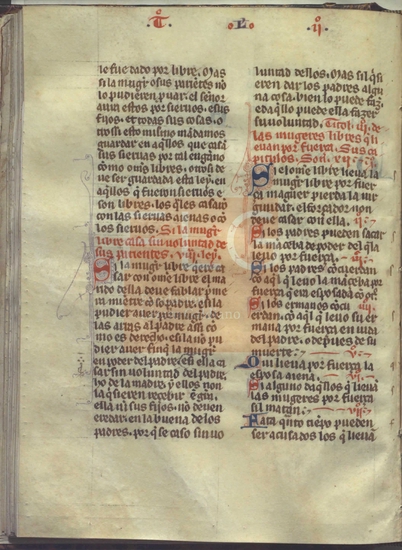 T. L. II
le fue dado por libre. Mas
si la mugier o sus parientes no
lo pudieren prouar. el señor
aura estos por sieruos. e sus
fijos. et todas sus cosas. o
trossi esto mismo mãdamos
guardar en aq̃llos que casã
sus sieruas por tal engaño
como om̃s libres. otrossi de
ue ser guardada esta ley. en
aq̃llos q̃ fuerõ sieruos e
son libres. los q̃les casarõ
con las sieruas aienas o cõ
los sieruos. Si la mugier
libre casa sin voluntad de
sus parientes. viij. ley.
Si la mugier libre q̃siere ca
sar con om̃e libre el ma
rido della deue fablar prime
ra miẽtre cõ so padre. e si la
pudier auer por mugier. de
las arras al padre assi co
mo es derecho. e si la no pu
dier auer finq̃ la mugier
en poder del padre. e si ella ca
sar sin voluntad del padre
ho de la madre. y ellos non
la q̃sieren recebir
ella ni sus fijos. no deuen
eredar. en la buena de los
padres. por q̃ se caso sin uo
luntad dellos. Mas si q̃si
eren dar los padres algu
na cosa. bien lo puede faz̃.
e daq̃llo puede ella fazer
su voluntad. Titol. iij. de
las mugeres libres q̃ li
euan por fuerça. Sus ca
pitulos. Son. xij.
Si el om̃e libre lieua la
mugier libre por fuer
ça maguer pierda la uir
ginidat. el forçador non
deue casar con ella. ij.
Si los padres pueden sacar
la manceba de poder del q̃ la
leuo por fuerça. iij.
Si los padres cõsienten
con aq̃l q̃ leuo la mãceba por
fuerça q̃ era esposada cõ ot̃.
Si los ermanos cõsi
enten. cõ aq̃l q̃ leuo su er
mana por fuerça en uida
del padre. o depues de su
muerte. v.
Qui lieua por fuerça la
esposa aiena.
Si alguno daq̃llos q̃ lieua
las mugeres por fuerça
sil matan. vij.
Fata q̃nto tiẽpo pueden
ser acusados los q̃ lieuã